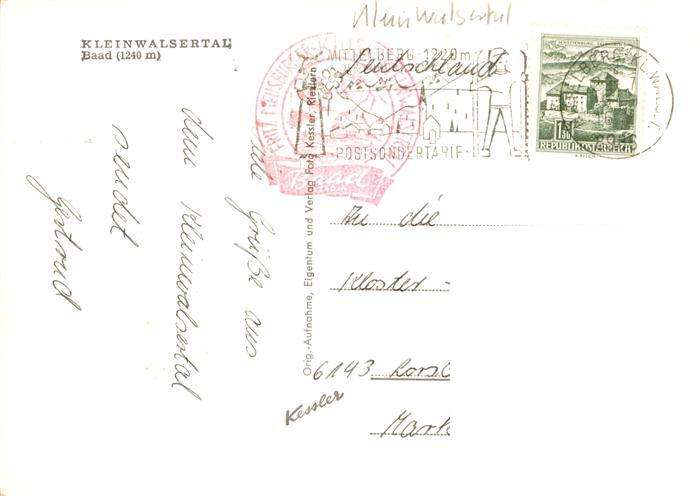 Kleinwalsertal
KLEINWALSERTAL,
Baad (1240 m)
MITTELBERG 1220m
Deutschland
POSTSONDERTARIF
Baad
1.50
REPUBLIK ÖSTERREICH
Grüße aus
dem Kleinwalsertal
sendet
Gertrud
Orig.-Aufnahme, Eigentum und Verlag Foto Kessler, Riezlern
An die
Kloster-
6143 Lors
Mark
Kessler